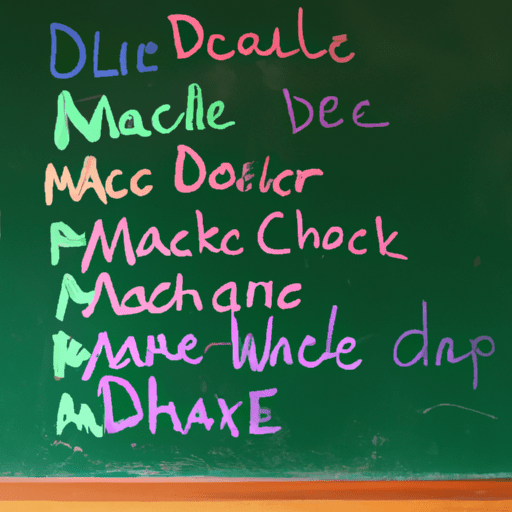 DLIE Dcaule
Maclle Dec
MAcc Doelcr
Mackc Chock
Machanc
Wncle dnp
DhaxE